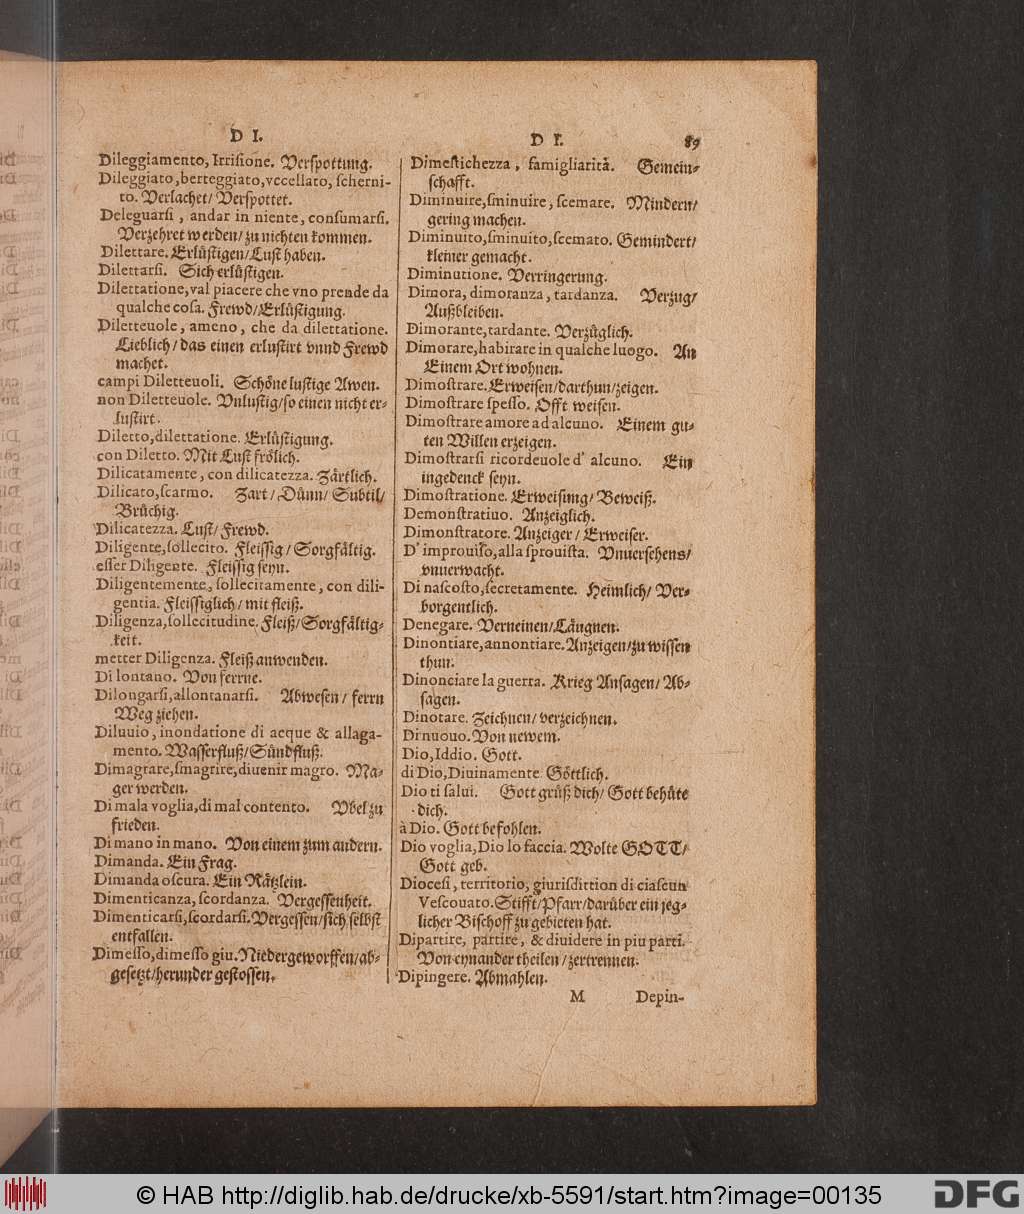 D I.
Dileggiamento, Irrisione. Verspottung.
Dileggiato, berteggiato, vccellato, scherni-
to. Verlachet/ Verspottet.
Deleguarsi, andar in niente, consumarsi.
Verzehret werden/ zu nichten kommen.
Dilettare. Erlüstigen/ Lust haben.
Dilettarsi. Sich erlüstigen.
Dilettatione, val piacere che vno prende da
qualche cosa. Frewd/ Erlüstigung.
Diletteuole, ameno, che da dilettatione.
Lieblich/ das einen erlustirt vnnd Frewd
machet.
campi Diletteuoli. Schöne lustige Awen.
non Diletteuole. Vnlustig/ so einen nicht er-
lustirt.
Diletto, dilettatione. Erlüstigung.
con Diletto. Mit Lust frölich.
Dilicatamente, con dilicatezza. Zärtlich.
Dilicato, scarmo. Zart/ Dünn/ Subtil/
Brüchig.
Dilicatezza. Lust/ Frewd.
Diligente, sollecito. Fleissig/ Sorgfältig.
esser Diligente. Fleissig seyn.
Diligentemente, sollecitamente, con dili-
gentia. Fleissiglich/ mit fleiß.
Diligenza, sollecitudine. Fleiß/ Sorgfältig-
keit.
metter Diligenza. Fleiß anwenden.
Di lontano. Von ferrne.
Dilongarsi, allontanarsi. Abwesen/ ferrn
Weg ziehen.
Diluuio, inondatione di acque & allaga-
mento. Wasserfluß/ Sündfluß.
Dimagrare, smagrire, diuenir magro. Ma-
ger werden.
Di mala voglia, di mal contento. Vbel zu
frieden.
Di mano in mano. Von einem zum andern.
Dimanda. Ein Frag.
Dimanda oscura. Ein Rätzlein.
Dimenticanza, scordanza. Vergessenheit.
Dimenticarsi, scordarsi. Vergessen/ sich selbst
entfallen.
Dimesso, dimesso giu. Niedergeworffen/ ab-
gesetzt/ herunder gestossen.
D I. 89
Dimestichezza, famigliarità. Gemein-
schafft.
Diminuire, sminuire, scemare. Mindern/
gering machen.
Diminuito, sminuito, scemato. Gemindert/
kleiner gemacht.
Diminutione. Verringerung.
Dimora, dimoranza, tardanza. Verzug/
Außbleiben.
Dimorante, tardante. Verzüglich.
Dimorare, habirare in qualche luogo. An
Einem Ort wohnen.
Dimostrare. Erweisen/ darthun/ zeigen.
Dimostrare spesso. Offt weisen.
Dimostrare amore ad alcuno. Einem gu-
ten Willen erzeigen.
Dimostrarsi ricordeuole d' alcuno. Ein
ingedenck seyn.
Dimostratione. Erweisung/ Beweiß.
Demonstratiuo. Anzeiglich.
Dimonstratore. Anzeiger/ Erweiser.
D' improuiso, alla sprouista. Vnuersehens/
vnuerwacht.
Di nascosto, secretamente. Heimlich/ Ver-
borgentlich.
Denegare. Verneinen/ Läugnen.
Dinontiare, annontiare. Anzeigen/ zu wissen
thun.
Dinonciare la guerra. Krieg Ansagen/ Ab-
sagen.
Dinotare. Zeichnen/ verzeichnen.
Di nuouo. Von newem.
Dio, Iddio. Gott.
di Dio, Diuinamente. Göttlich.
Dio ti salui. Gott grüß dich/ Gott behüte
dich.
à Dio. Gott befohlen.
Dio voglia, Dio lo faccia. Wolte GOTT/
Gott geb.
Diocesi, territorio, giurisdittion di ciascun
Vescouato. Stifft/ Pfarr/ darüber ein jeg-
licher Bischoff zu gebieten hat.
Dipartire, partire, & diuidere in piu parti.
Von eynander theilen/ zertrennen.
Dipingere. Abmahlen.
M Depin-
© HAB http://diglib.hab.de/drucke/xb-5591/start.htm?image=00135
DFG